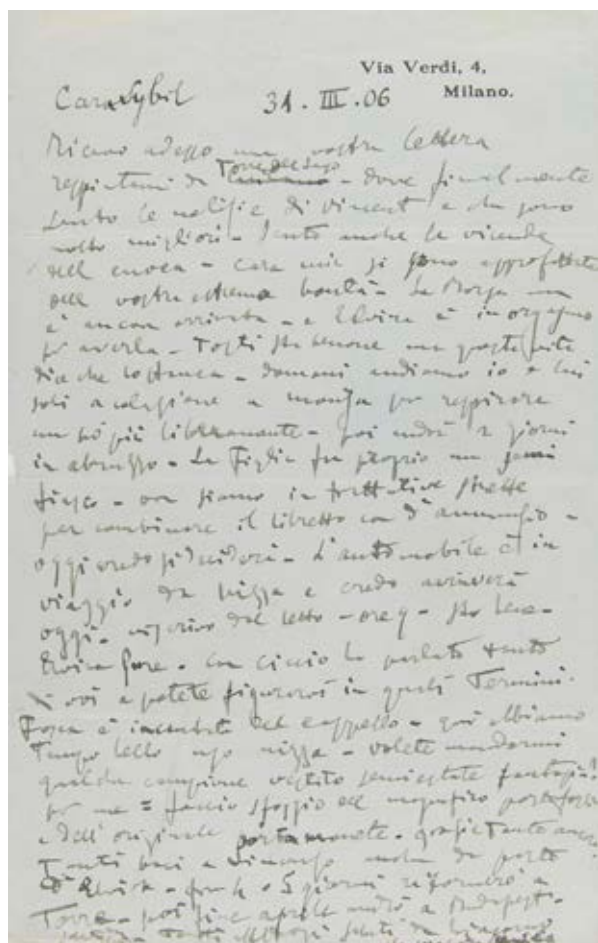 Via Verdi, 4,
Milano.
Cara Sybil
31. III. 06
Ricevo adesso una vostra lettera
respintami da Torre del Lago - dove finalmente
sento le notizie di Vincent e che sono
molto migliori - Sento anche le vicende
della cuoca - cara mia si sono approfittati
della vostra estrema bontà - La Borsa non
è ancora arrivata - e Elvira è in orgasmo
per averla - Tosti sta benone ma questa vita
dice che lo stanca - domani andiamo io e lui
soli a colazione a Monza per respirare
un pò più liberamente - poi andrà 2 giorni
in abruzzo - La Figlia fu proprio un semi
fiasco - ora siamo in trattative strette
per combinare il libretto con d'annunzio -
oggi credo si deciderà - L'automobile è in
viaggio da Nizza e credo arriverà
oggi - vi scrivo dal letto - ore 9 - sto bene -
Elvira pure - con ciccio ho parlato tanto
di voi e potete figurarvi in quali Termini -
Fosca è incantata del cappello - qui abbiamo
Tempo bello uso nizza - volete mandarmi
qualche campione vestito semiestate fantasia?
per me = faccio sfoggio del magnifico
e dell'originale portamonete - grazie Tante ancora
Tanti baci a Vincenzo anche da parte
d'Elvira - fra 4 o 5 giorni ritornerò a
Torre - poi fine aprile andrò a Budapest -
Tanti saluti da